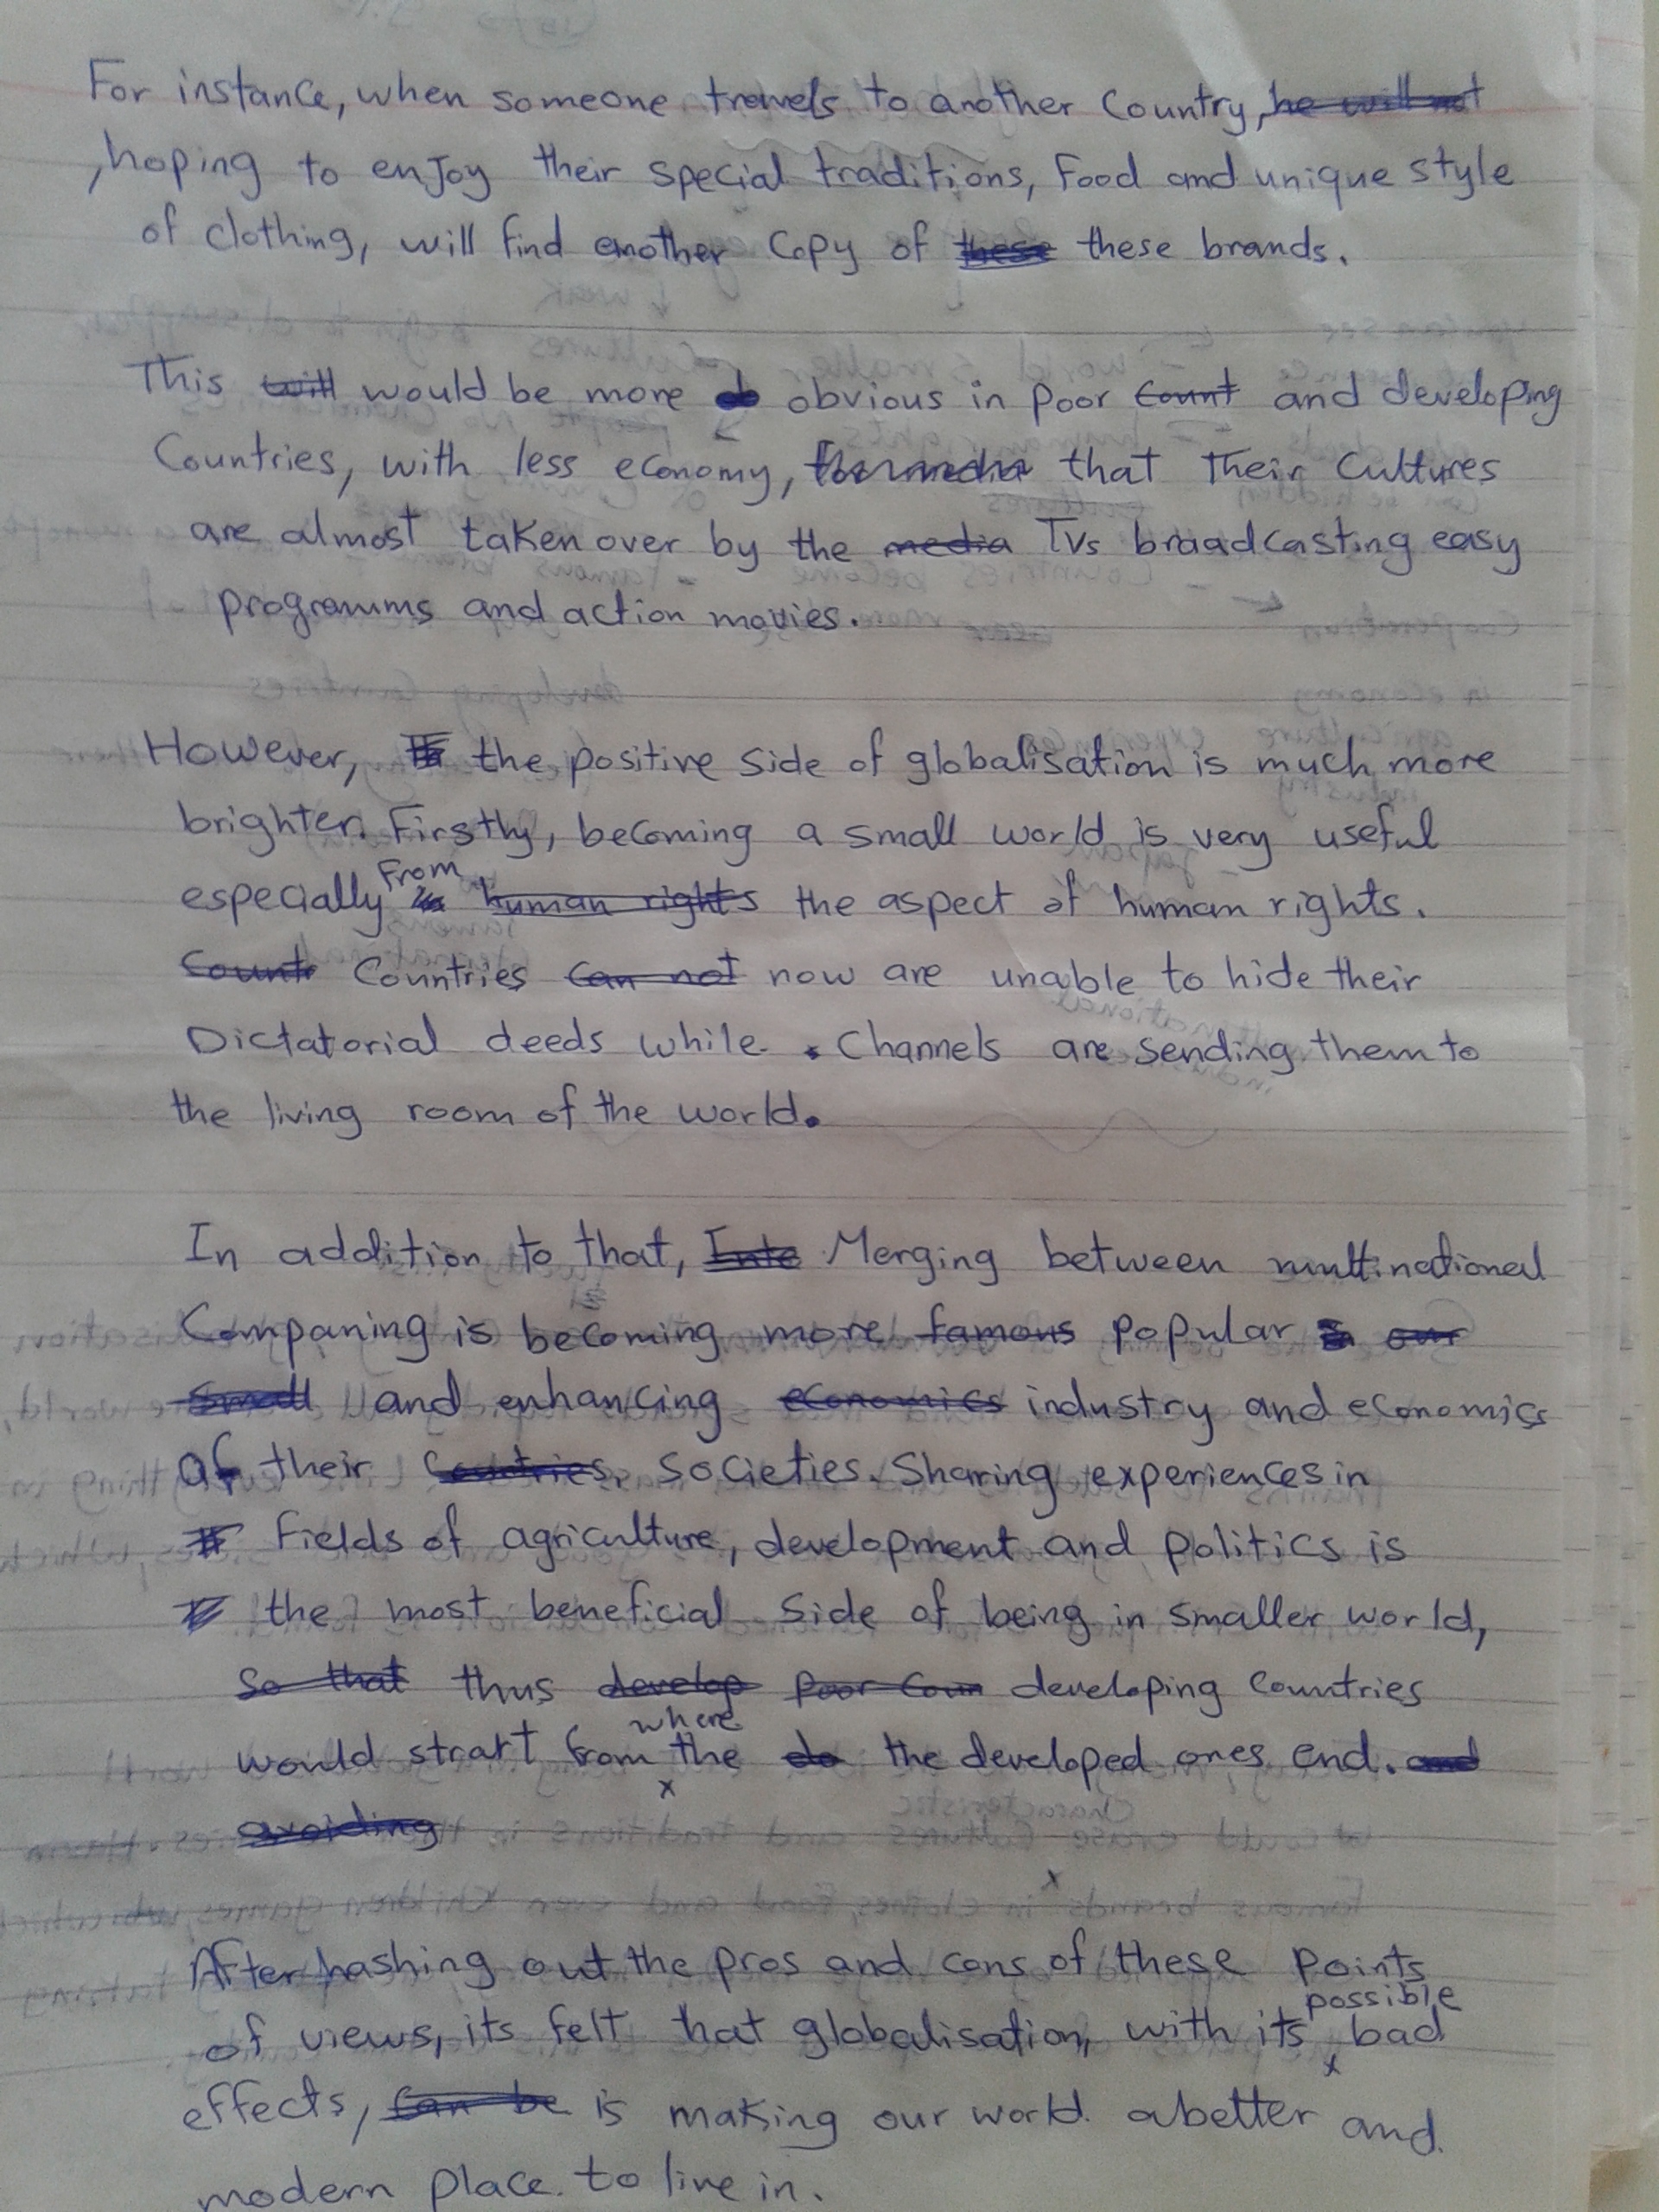 For instance, when someone travels to another Country, he will not
, hoping to enjoy their special traditions, Food and unique style
of clothing, will find another Copy of these these brands.
This will would be more ob obvious in poor Count and developing
Countries, with less economy, that their Cultures
are almost taken over by the media TVs broadcasting easy
programms and action movies.
However, the positive side of globalisation is much more
brighter. Firstly, becoming a small world is very useful
especially From human rights the aspect of human rights.
Count Countries Can not now are unable to hide their
Dictatorial deeds while Channels are sending them to
the living room of the world.
In addition to that, Inte Merging between multinational
Companing is becoming more famous popular our
small and enhancing economics industry and economics
of their Countries, societies. Sharing experiences in
Fields of agriculture, development and politics is
the most beneficial side of being in smaller world,
So that thus develop poor Coun developing Countries
would strart from where the do the developed ones end. and
avoiding
After hashing out the pros and cons of these points
of views, its felt that globalisation, with its possible bad
effects, Can be is making our world a better and
modern place to live in.